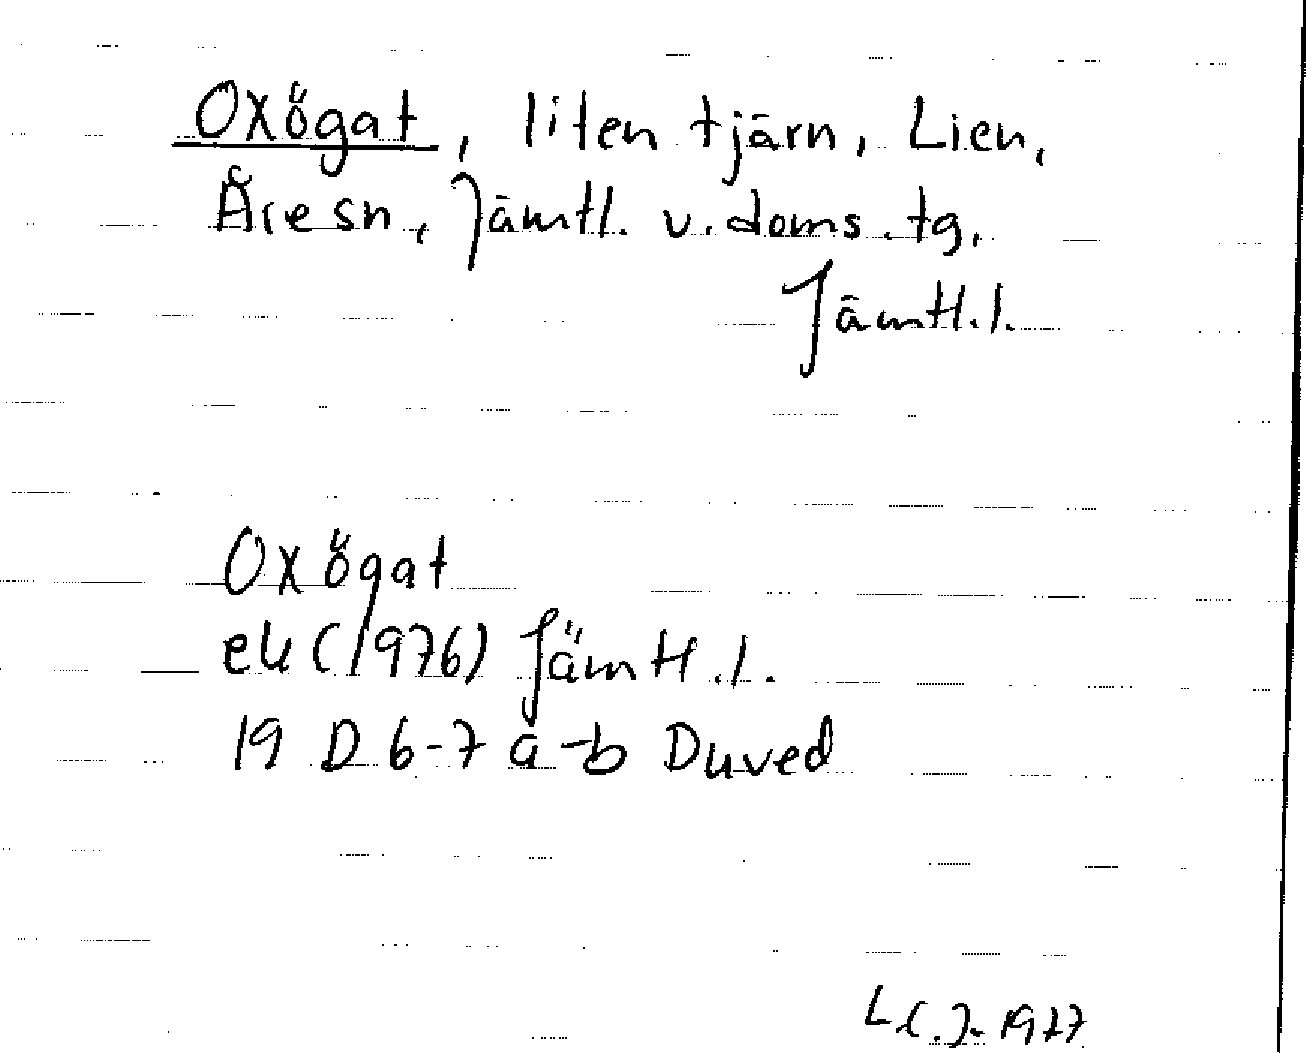 Oxögat, liten tjärn, Lien,
Åre sn, Jämtl. v. doms. tg.
Jämtl.l.
Oxögat
ek (1976) Jämtl.l.
19 D 6-7 a-b Duved
1977